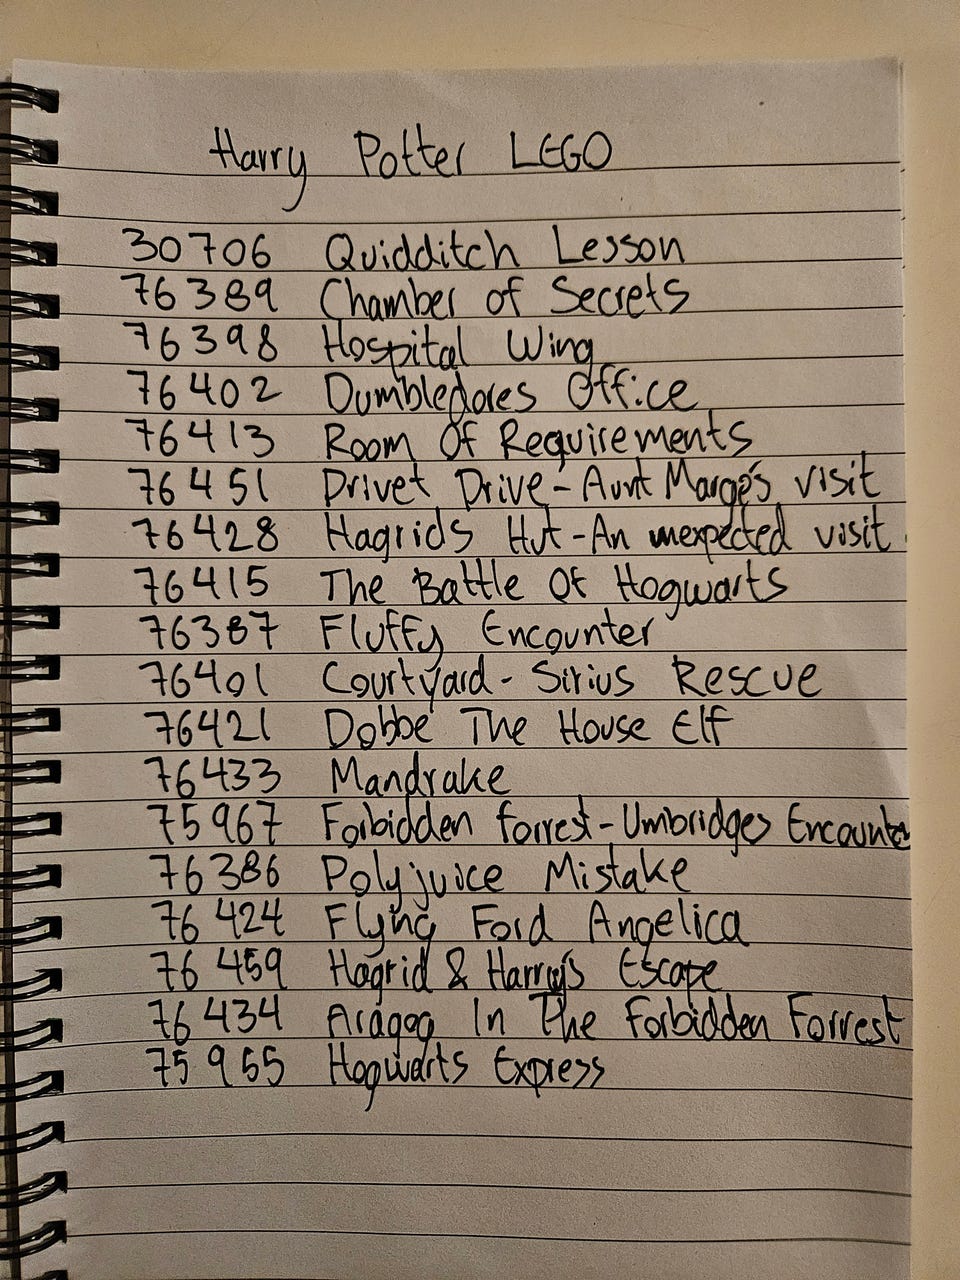 Harry Potter LEGO
30706 Quidditch Lesson
76389 Chamber of Secrets
76398 Hospital Wing
76402 Dumbledores Office
76413 Room Of Requirements
76451 Privet Drive - Aunt Marge's visit
76428 Hagrids Hut - An unexpected visit
76415 The Battle Of Hogwarts
76387 Fluffy Encounter
76401 Courtyard - Sirius Rescue
76421 Dobbe The House Elf
76433 Mandrake
75967 Forbidden Forrest - Umbridges Encounter
76386 Polyjuice Mistake
76424 Flying Ford Angelica
76459 Hagrid & Harry's Escape
76434 Aragog In The Forbidden Forrest
75955 Hogwarts Express